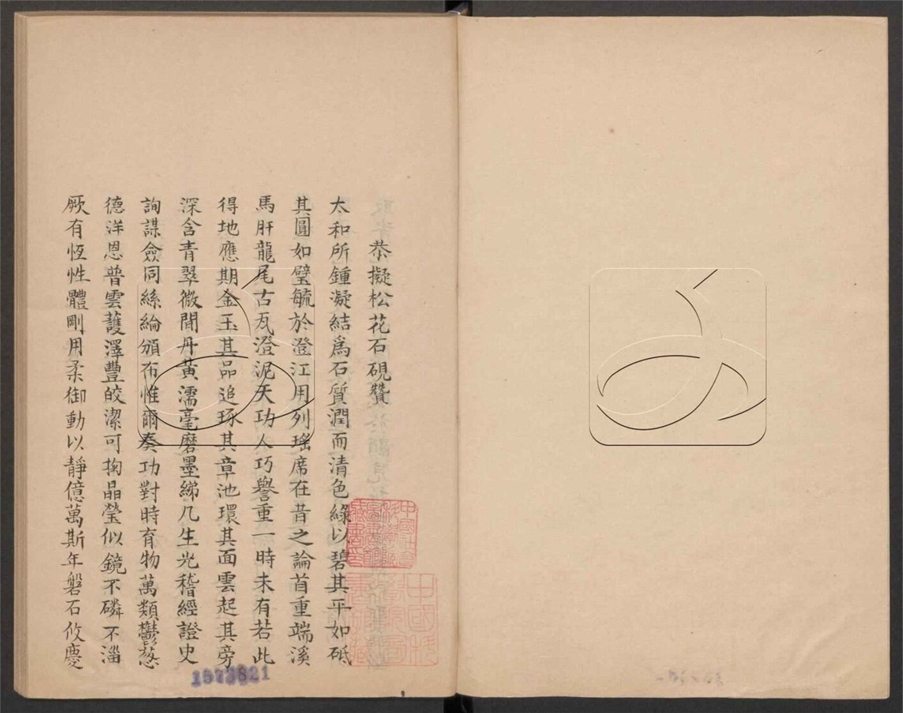 恭擬松花石硯贊
太和所鍾凝結爲石質潤而清色綠以碧其平如砥
其圓如璧毓於澄江用列瑤席在昔之論首重端溪
馬肝龍尾古瓦澄泥天功人巧譽重一時未有若此
得地應期金玉其品追琢其章池環其面雲起其旁
深含青翠微間丹黃濡毫磨墨綈几生光稽經證史
詢謀僉同絲綸頒布惟爾奏功對時育物萬類鬱葱
德洋恩普雲蒦澤豐皎潔可掬晶瑩似鏡不磷不淄
厥有恆性體剛用柔御動以靜億萬斯年磐石攸慶
1573821